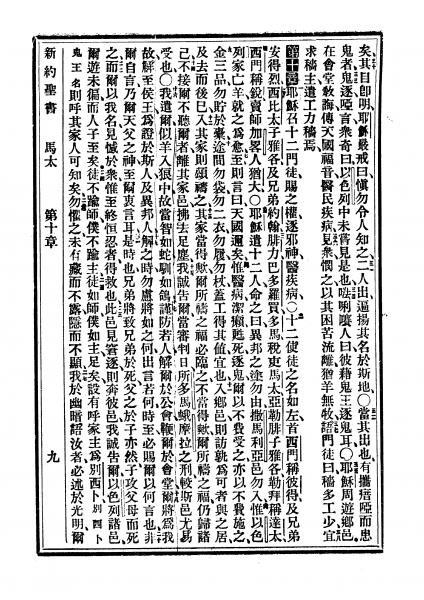 矣其目卽明耶穌嚴戒曰愼勿令人知之二人出遍揚其名於斯地○當其出也有攜瘖啞而患
鬼者鬼逐啞言衆奇曰以色列中未嘗見是也𠵽唎㘔人曰彼藉鬼王逐鬼耳○耶穌周遊鄉邑
在會堂敎誨傳天國福音醫民疾病見衆憫之以其困苦流離猶羊無牧語門徒曰穡多工少宜
求穡主遣工力穡焉
第十章 耶穌召十二門徒賜之權逐邪神醫疾病○十二使徒之名如左首西門稱彼得及兄弟
安得烈西比太子雅各及兄弟約翰腓力巴多羅買多馬稅吏馬太亞勒腓子雅各勒拜稱達太
西門稱銳賣師加畧人猶大○耶穌遣十二人命之曰異邦之途勿由撒馬利亞邑勿入惟以色
列家亡羊就之爲愈至則言曰天國邇矣惟醫病潔癩甦死逐鬼爾以不費受之亦以不費施之
金三品勿貯於橐途間勿袋勿二衣勿履勿杖蓋工得其値宜也入鄉邑則訪孰爲可者與之居
及去而後已入其家則頌禱之其家當得歟爾所禱之福必臨之不當得歟爾所禱之福仍歸諸
己不接爾不聽爾者離其家邑拂去足塵我誠告爾當審判日所多馬蛾摩拉之刑較斯邑尤易
受也○我遣爾似羊入狼中故當智如蛇馴如鴿謹防若人解爾於公會鞭爾於會堂爾將爲我
故解至侯王爲證於斯人及異邦人解之時勿慮將如之何出言若何時至必賜爾以何言也非
爾自言乃爾天父之神至爾衷言耳是時也兄弟將致兄弟於死父之於子亦然子攻父母而死
之而爾以我名見憾於衆惟至終恒忍者得救也此邑見窘逐則奔彼邑我誠告爾以色列諸邑
爾遊未徧而人子至矣徒不踰師僕不踰主徒如師僕如主足矣設有呼家主爲別西卜別西卜
鬼王名則呼其家人可知矣勿懼之未有藏而不露隱而不顯我於幽暗語汝者必述於光明爾
新約聖書 馬太 第十章 九